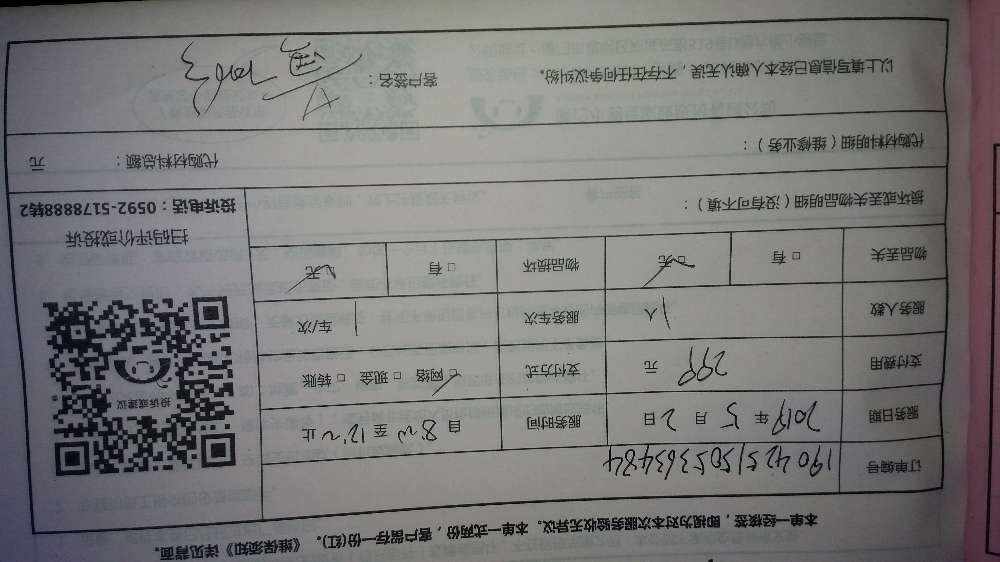 本单一经核签，即视为对本次服务验收无异议。本单一式两份，客户留存一份(红)。《维保须知》详见背面。
订单编号 1904251505363484
服务日期 2019 年 5 月 2 日 服务时间 自 8:00 至 12:00 止
支付费用 299 元 支付方式 □ 网络 □ 现金 □ 转账
服务人数 1 人 服务车次 1 车/次
物品丢失 □ 有 □ 无 物品损坏 □ 有 □ 无
损坏或丢失物品明细（没有可不填）：
投诉或建议
扫码评价或投诉
投诉电话：0592-5178888转2
代购材料明细（维修业务）： 代购材料总额： 元
以上填写信息已经本人确认无误，不存在任何争议纠纷。 客户签名：